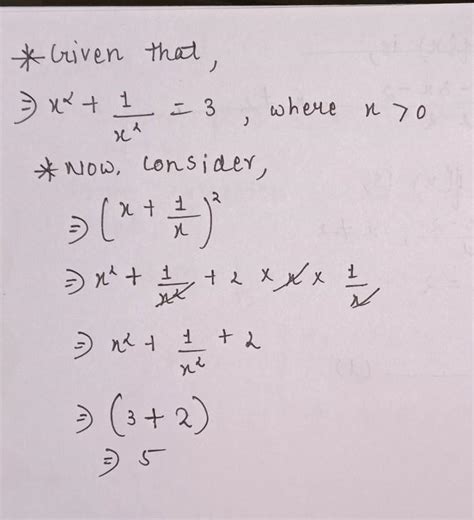 * Given that,
⇒ x² + 1/x² = 3, where x > 0
* Now, consider,
⇒ (x + 1/x)²
⇒ x² + 1/x² + 2 × x × 1/x
⇒ x² + 1/x² + 2
⇒ (3 + 2)
⇒ 5